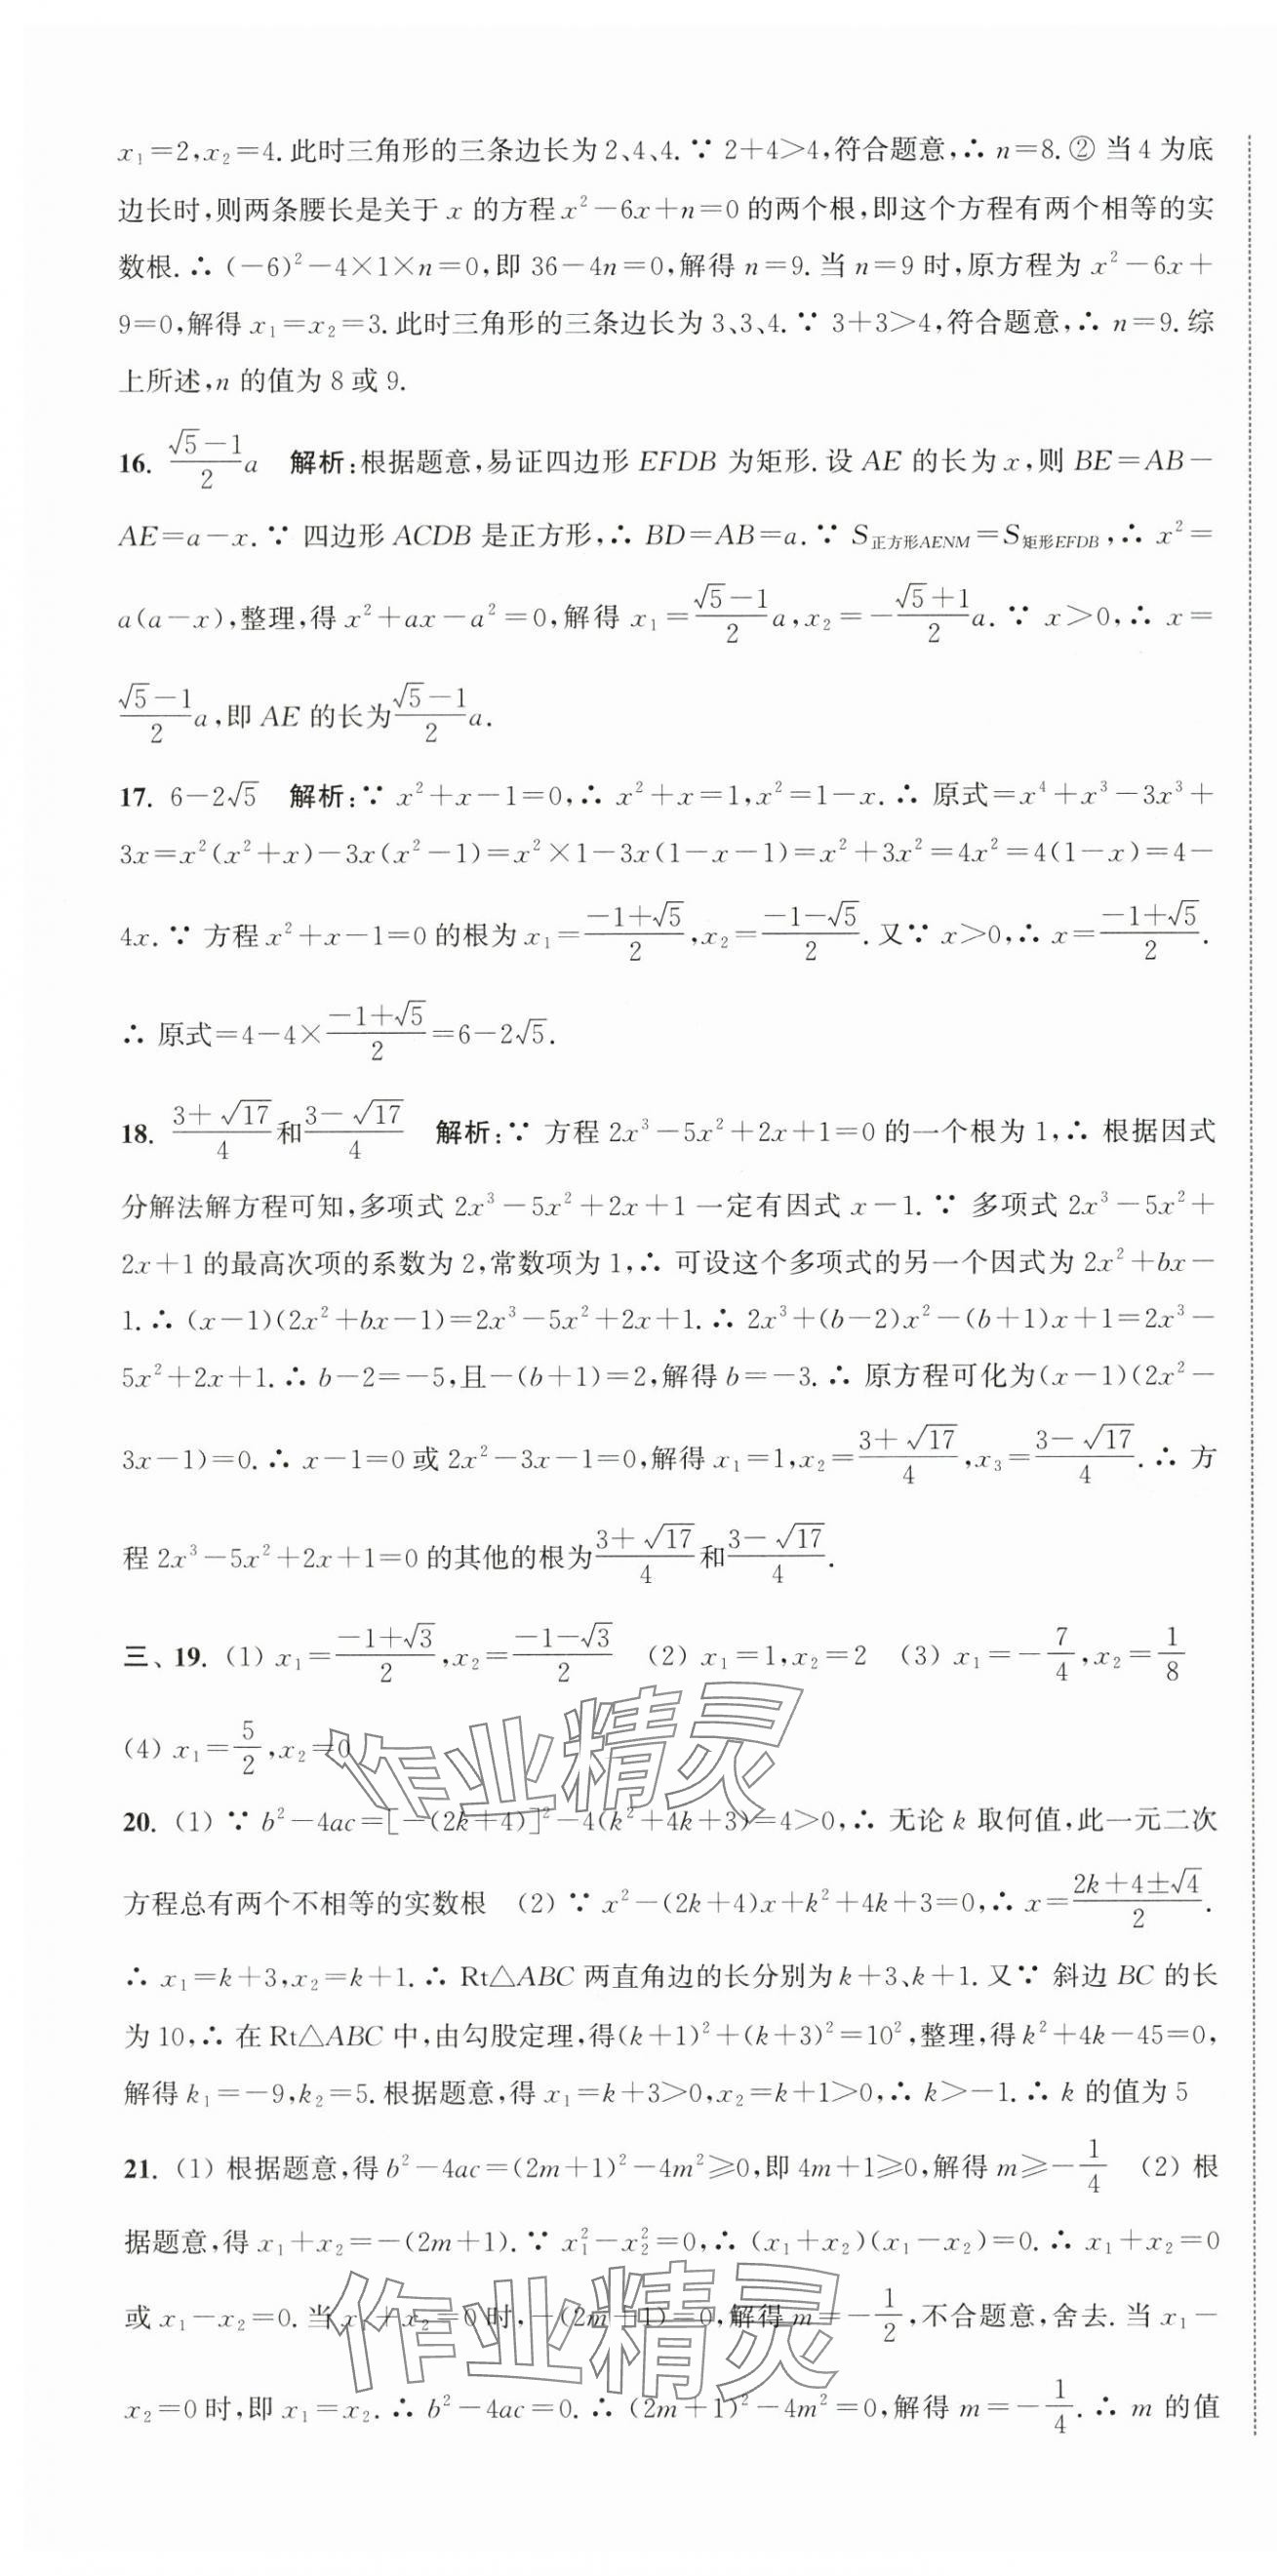 x₁=2,x₂=4.此时三角形的三条边长为2、4、4.∵ 2+4>4,符合题意,∴ n=8.② 当4为底
边长时,则两条腰长是关于 x 的方程 x²-6x+n=0 的两个根,即这个方程有两个相等的实
数根.∴ (-6)²-4×1×n=0,即 36-4n=0,解得 n=9.当 n=9 时,原方程为 x²-6x+
9=0,解得 x₁=x₂=3.此时三角形的三条边长为3、3、4.∵ 3+3>4,符合题意,∴ n=9.综
上所述,n 的值为 8 或 9.
16. (√5-1)/2 a 解析:根据题意,易证四边形 EFDB 为矩形.设 AE 的长为 x,则 BE=AB-
AE=a-x.∵ 四边形 ACDB 是正方形,∴ BD=AB=a.∵ S正方形AENM=S矩形EFDB,∴ x²=
a(a-x),整理,得 x²+ax-a²=0,解得 x₁=(√5-1)/2 a,x₂=-(√5+1)/2 a.∵ x>0,∴ x=
(√5-1)/2 a,即 AE 的长为(√5-1)/2 a.
17. 6-2√5 解析:∵ x²+x-1=0,∴ x²+x=1,x²=1-x.∴ 原式=x⁴+x³-3x³+
3x=x²(x²+x)-3x(x²-1)=x²×1-3x(1-x-1)=x²+3x²=4x²=4(1-x)=4-
4x.∵ 方程 x²+x-1=0 的根为 x₁=(-1+√5)/2,x₂=(-1-√5)/2.又∵ x>0,∴ x=(-1+√5)/2.
∴ 原式=4-4×(-1+√5)/2=6-2√5.
18. (3+√17)/4和(3-√17)/4 解析:∵ 方程 2x³-5x²+2x+1=0 的一个根为 1,∴ 根据因式
分解法解方程可知,多项式 2x³-5x²+2x+1 一定有因式 x-1.∵ 多项式 2x³-5x²+
2x+1 的最高次项的系数为 2,常数项为 1,∴ 可设这个多项式的另一个因式为 2x²+bx-
1.∴ (x-1)(2x²+bx-1)=2x³-5x²+2x+1.∴ 2x³+(b-2)x²-(b+1)x+1=2x³-
5x²+2x+1.∴ b-2=-5,且-(b+1)=2,解得 b=-3.∴ 原方程可化为(x-1)(2x²-
3x-1)=0.∴ x-1=0 或 2x²-3x-1=0,解得 x₁=1,x₂=(3+√17)/4,x₃=(3-√17)/4.∴ 方
程 2x³-5x²+2x+1=0 的其他的根为(3+√17)/4和(3-√17)/4.
三、19. (1) x₁=(-1+√3)/2,x₂=(-1-√3)/2 (2) x₁=1,x₂=2 (3) x₁=-7/4,x₂=1/8
(4) x₁=5/2,x₂=0
作业精灵
20. (1) ∵ b²-4ac=[-(2k+4)]²-4(k²+4k+3)=4>0,∴ 无论 k 取何值,此一元二次
方程总有两个不相等的实数根 (2) ∵ x²-(2k+4)x+k²+4k+3=0,∴ x=(2k+4±√4)/2.
∴ x₁=k+3,x₂=k+1.∴ Rt△ABC 两直角边的长分别为 k+3、k+1.又∵ 斜边 BC 的长
为 10,∴ 在 Rt△ABC 中,由勾股定理,得(k+1)²+(k+3)²=10²,整理,得 k²+4k-45=0,
解得 k₁=-9,k₂=5.根据题意,得 x₁=k+3>0,x₂=k+1>0,∴ k>-1.∴ k 的值为 5
21. (1) 根据题意,得 b²-4ac=(2m+1)²-4m²≥0,即 4m+1≥0,解得 m≥-1/4 (2) 根
据题意,得 x₁+x₂=-(2m+1).∵ x₁²-x₂²=0,∴ (x₁+x₂)(x₁-x₂)=0.∴ x₁+x₂=0
或 x₁-x₂=0.当 x₁+x₂=0 时,-(2m+1)=0,解得 m=-1/2,不合题意,舍去.当 x₁-
作业精灵
x₂=0 时,即 x₁=x₂.∴ b²-4ac=0.∴ (2m+1)²-4m²=0,解得 m=-1/4.∴ m 的值